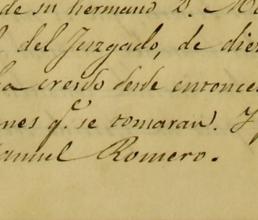 de su hermano D. M
del Juzgado, de die
ha creido desde entonce
nes q.e se tomaran. Y
anuel Romero.